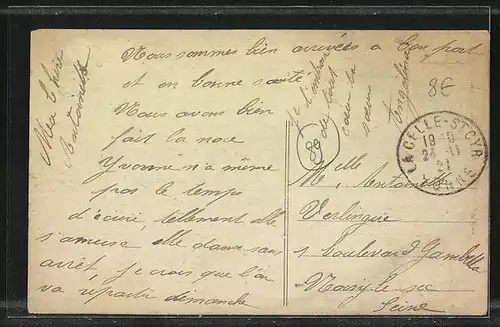 Ma chère
Antoinette
Nous sommes bien arrivées a bon port
et en bonne santé
Nous avons bien
fait la noce
Yvonne n'a même
pas le temps
d'écrire, tellement elle
s'amuse elle danse sans
arrêt, je crois que l'on
va repartir dimanche
Je t'embrasse
de tout
cœur ta
sœur
8€
80
LA CELLE-ST-CYR
YONNE
Melle Antoinette
Verlingue
1 boulevard Gambetta
Noisy le sec
Seine